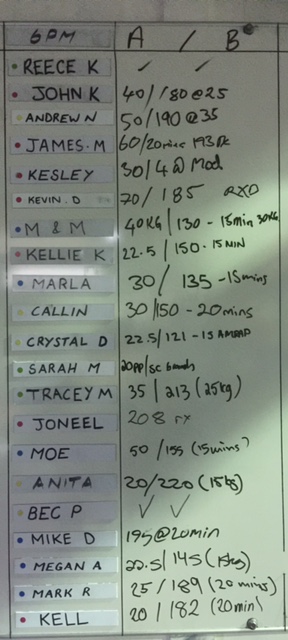 6PM A / B
REECE K ✓ ✓
JOHN K 40/180@25
ANDREW N 50/190@35
JAMES.M 60/20mins 193
KESLEY 30/4 @ Mod
KEVIN.D 70/185 RXD
M & M 40KG/130 - 15min 30KG
KELLIE K 22.5/150.15MIN
MARLA 30/135 - 15mins
CALLIN 30/150 - 20mins
CRYSTAL D 22.5/121 - 15 AMRAP
SARAH M 20PP/SC
TRACEY M 35/213 (25kg)
JONEEL 208 rx
MOE 50/155 (15mins)
ANITA 20/220 (15kg)
BEC P ✓ ✓
MIKE D 195@20min
MEGAN A 22.5/145 (15kg)
MARK R 25/189 (20mins)
KELL 20/182 (20min)